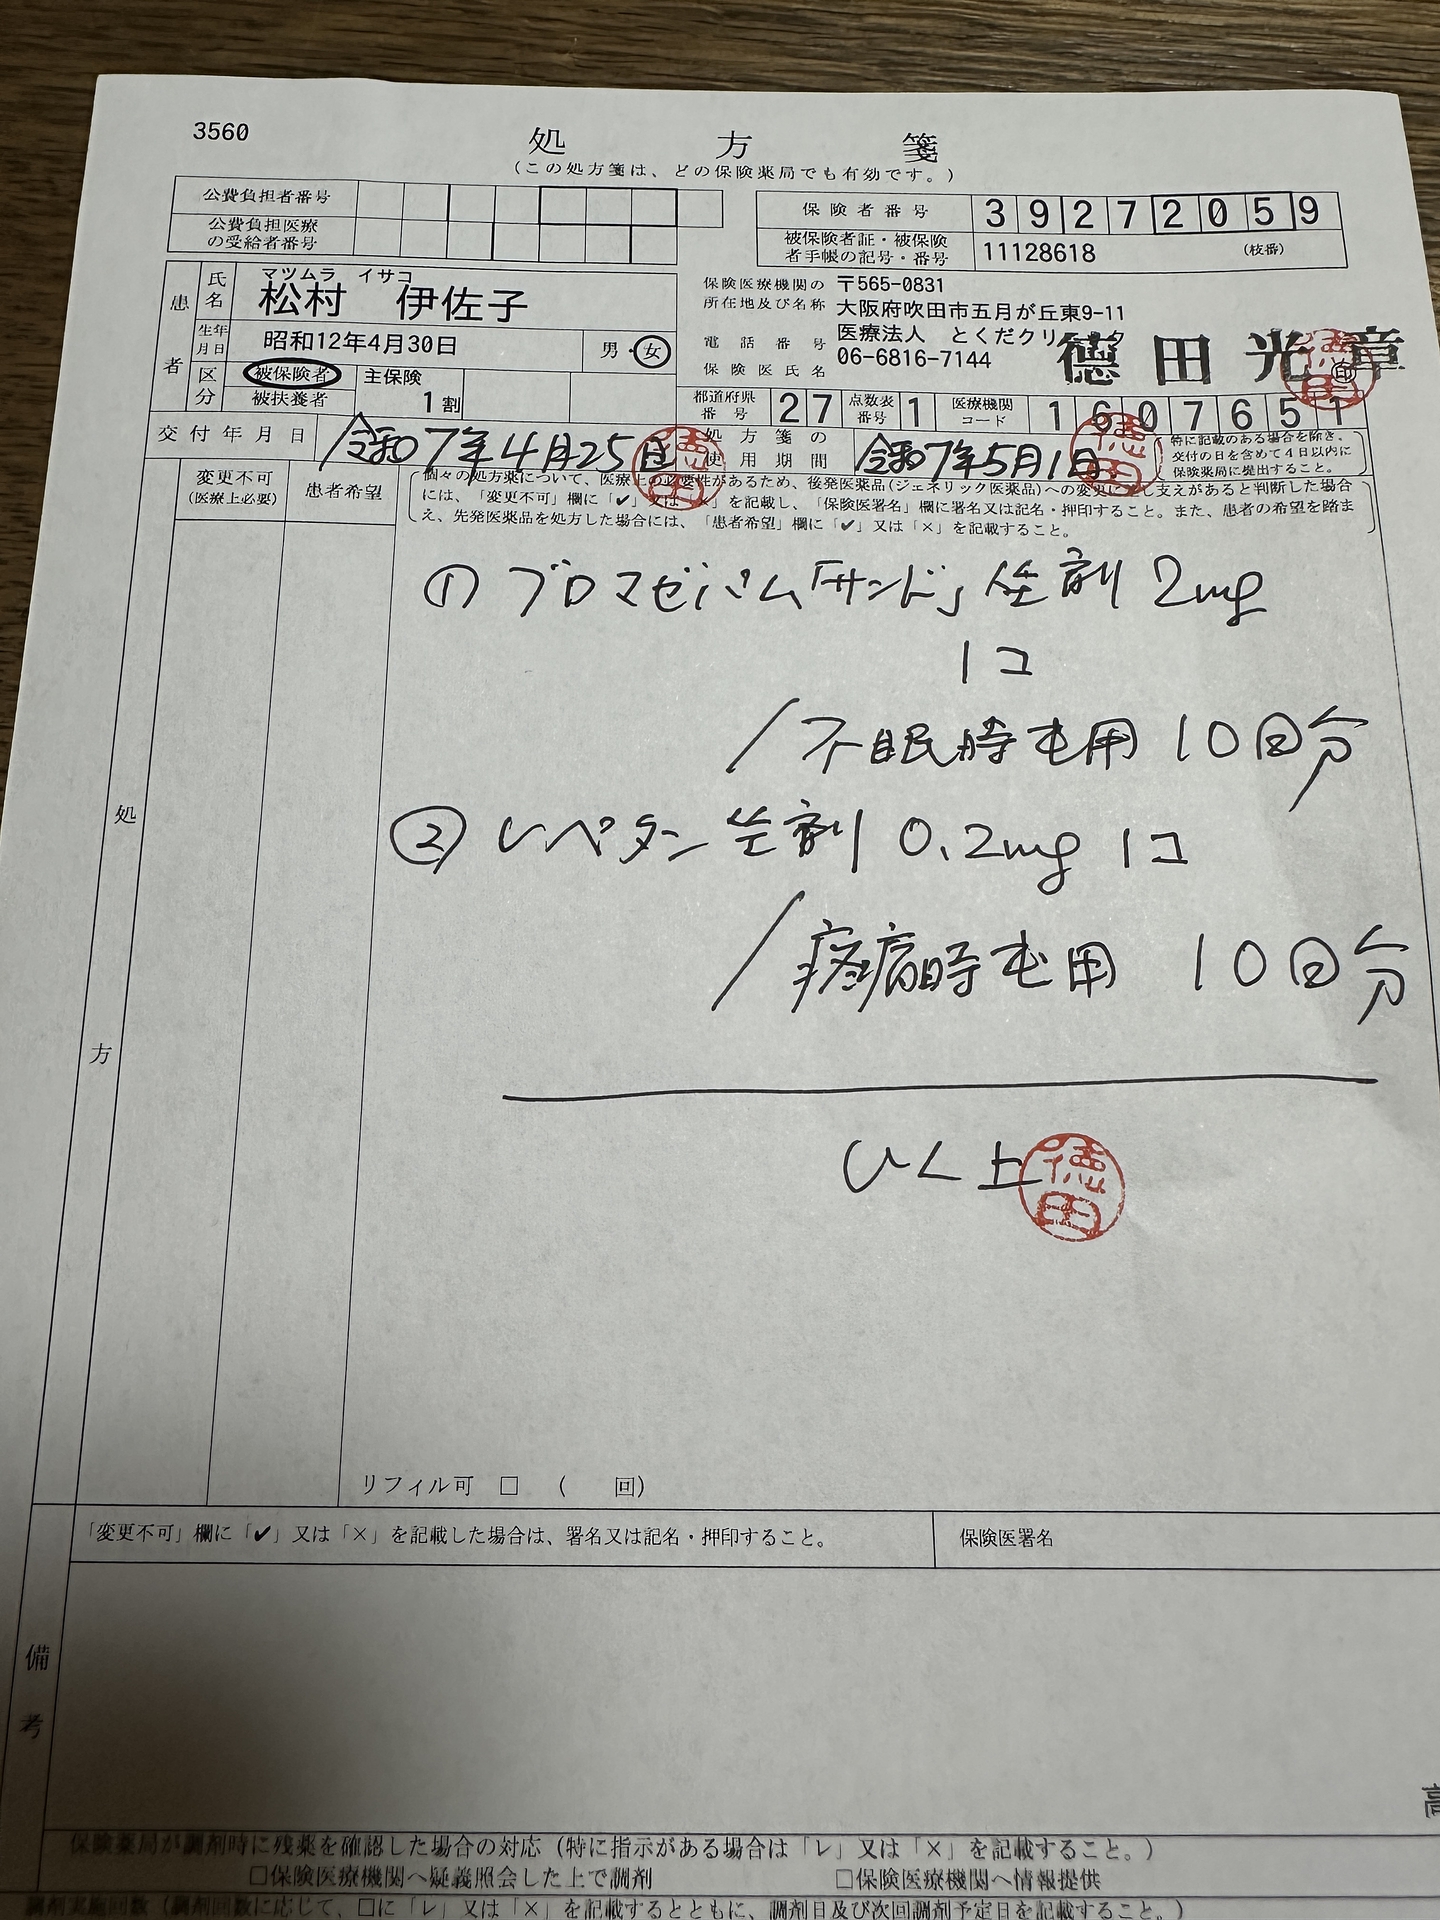 3560
処方箋
(この処方箋は、どの保険薬局でも有効です。)
公費負担者番号
公費負担医療の受給者番号
保険者番号 39272059
被保険者証・被保険者手帳の記号・番号 11128618 (枝番)
患者
氏名 マツムラ イサコ
松村 伊佐子
生年月日 昭和12年4月30日 男・女
区分 被保険者 主保険
被扶養者 1割
保険医療機関の所在地及び名称 〒565-0831
大阪府吹田市五月が丘東9-11
医療法人 とくだクリニック
電話番号 06-6816-7144
保険医氏名 德田光章 印
都道府県番号 27 点数表番号 1 医療機関コード 1607651
交付年月日 令和7年4月25日
処方箋の使用期間 令和7年5月1日
特に記載のある場合を除き、交付の日を含めて4日以内に保険薬局に提出すること。
処方
変更不可(医療上必要) 患者希望
個々の処方薬について、医療上の必要性があるため、後発医薬品(ジェネリック医薬品)への変更に差し支えがあると判断した場合
には、「変更不可」欄に「✔」又は「×」を記載し、「保険医署名」欄に署名又は記名・押印すること。また、患者の希望を踏ま
え、先発医薬品を処方した場合には、「患者希望」欄に「✔」又は「×」を記載すること。
① ブロマゼパム「サンド」坐剤 2mg
1コ
/不眠時屯用 10回分
② レペタン坐剤 0.2mg 1コ
/疼痛時屯用 10回分
以上
德田
リフィル可 □ ( 回)
「変更不可」欄に「✔」又は「×」を記載した場合は、署名又は記名・押印すること。
保険医署名
備考
高
保険薬局が調剤時に残薬を確認した場合の対応(特に指示がある場合は「レ」又は「×」を記載すること。)
□保険医療機関へ疑義照会した上で調剤 □保険医療機関へ情報提供
調剤実施回数(調剤回数に応じて、□に「レ」又は「×」を記載するとともに、調剤日及び次回調剤予定日を記載すること。)